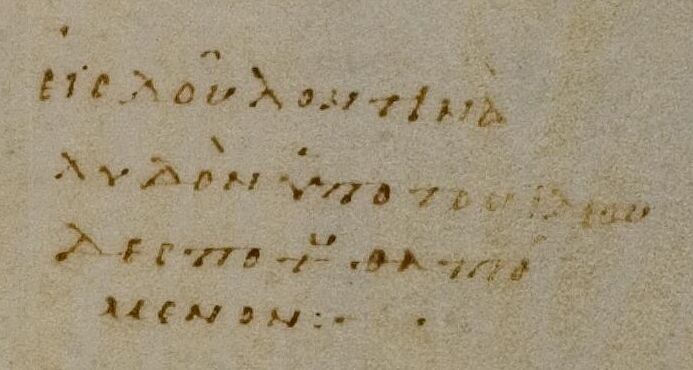 εἰς δοῦλον τινὰ
λυδὸν ὑπο του ιδίου
δεσποτȣ θαπτό
μενον:- .